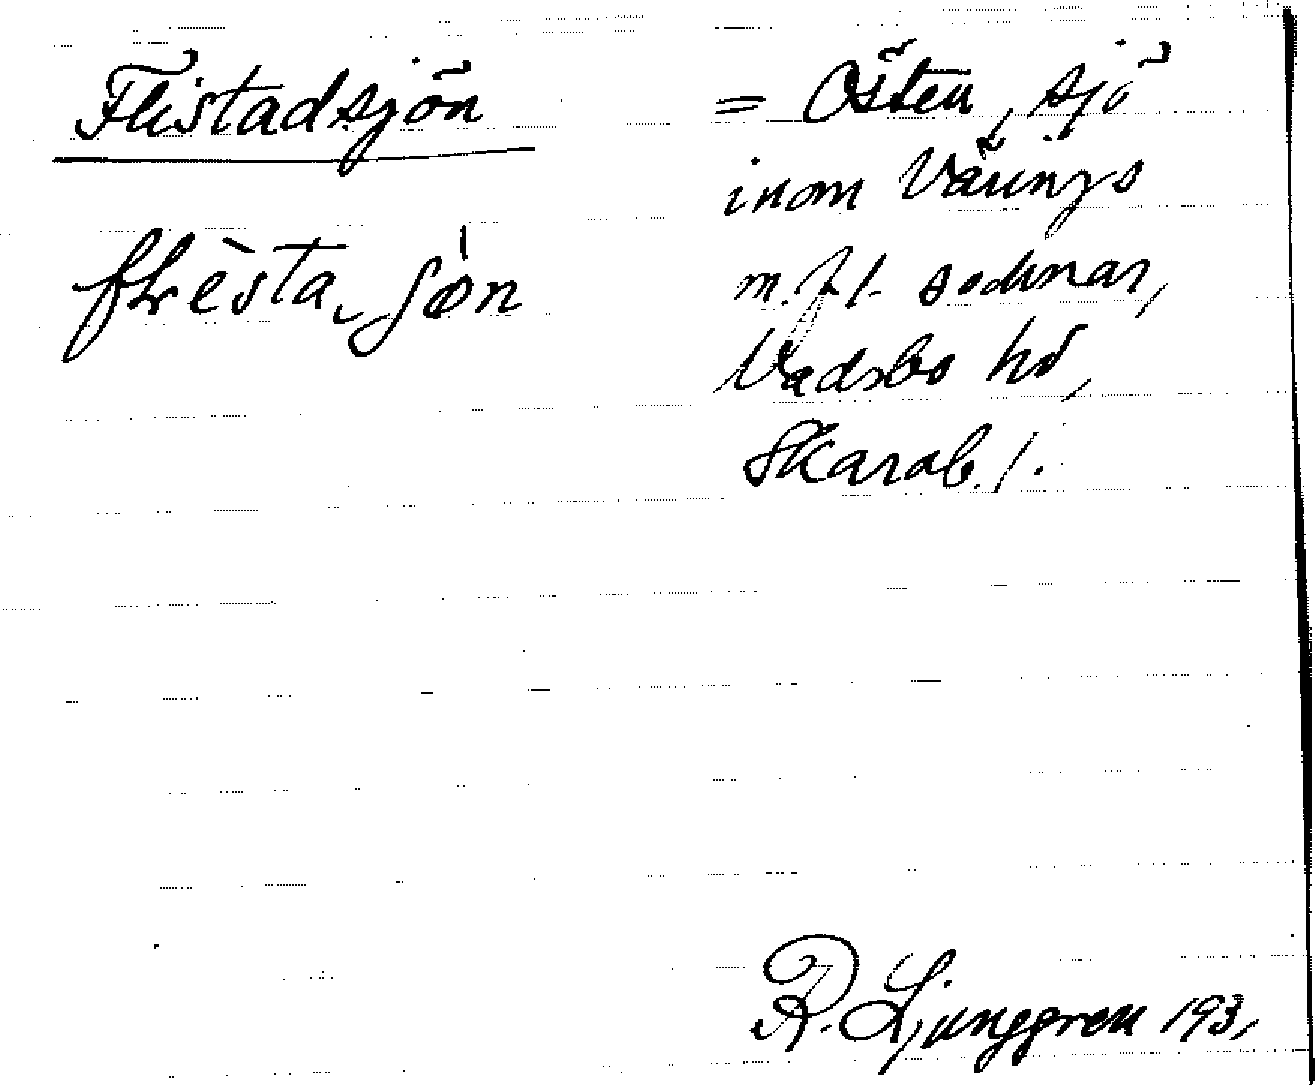 Flistadsjön
= Östen, sjö
inom Värings
m. fl. socknar,
Vadsbo hd,
Skarab. l.
R. Ljunggren 193